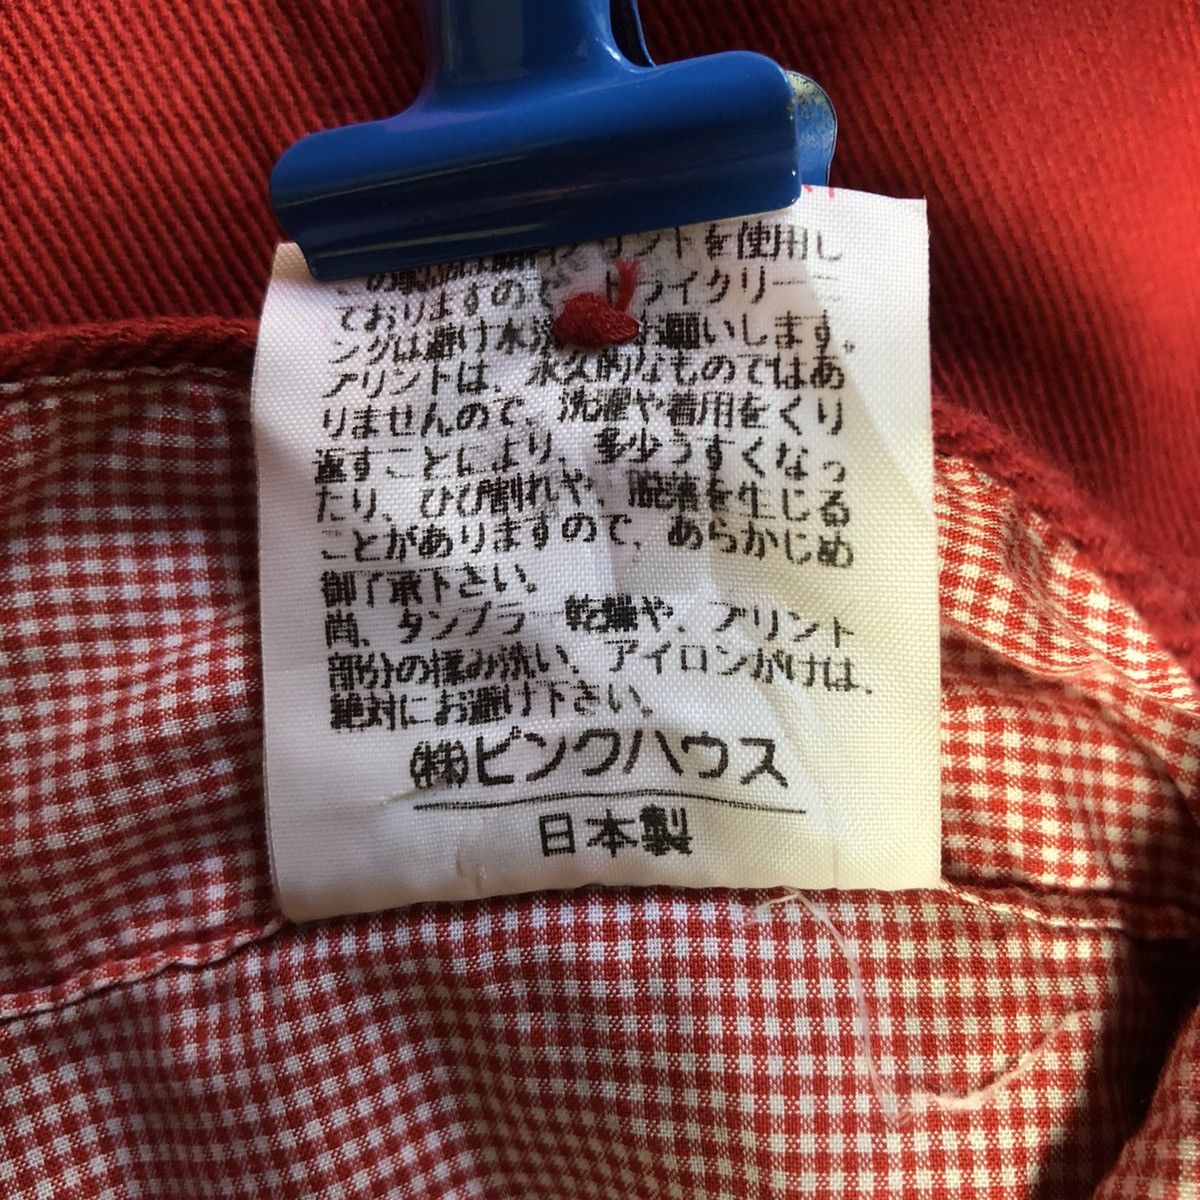 この製品は プリントを使用し
ておりますので ドライクリーニ
ングは避け水洗 お願いします。
プリントは、永久的なものではあ
りませんので、洗濯や着用をくり
返すことにより、多少うすくなっ
たり、ひび割れや、脱落を生じる
ことがありますので、あらかじめ
御了承下さい。
尚、タンブラー乾燥や、プリント
部分の揉み洗い、アイロンがけは、
絶対にお避け下さい。
㈱ピンクハウス
日本製